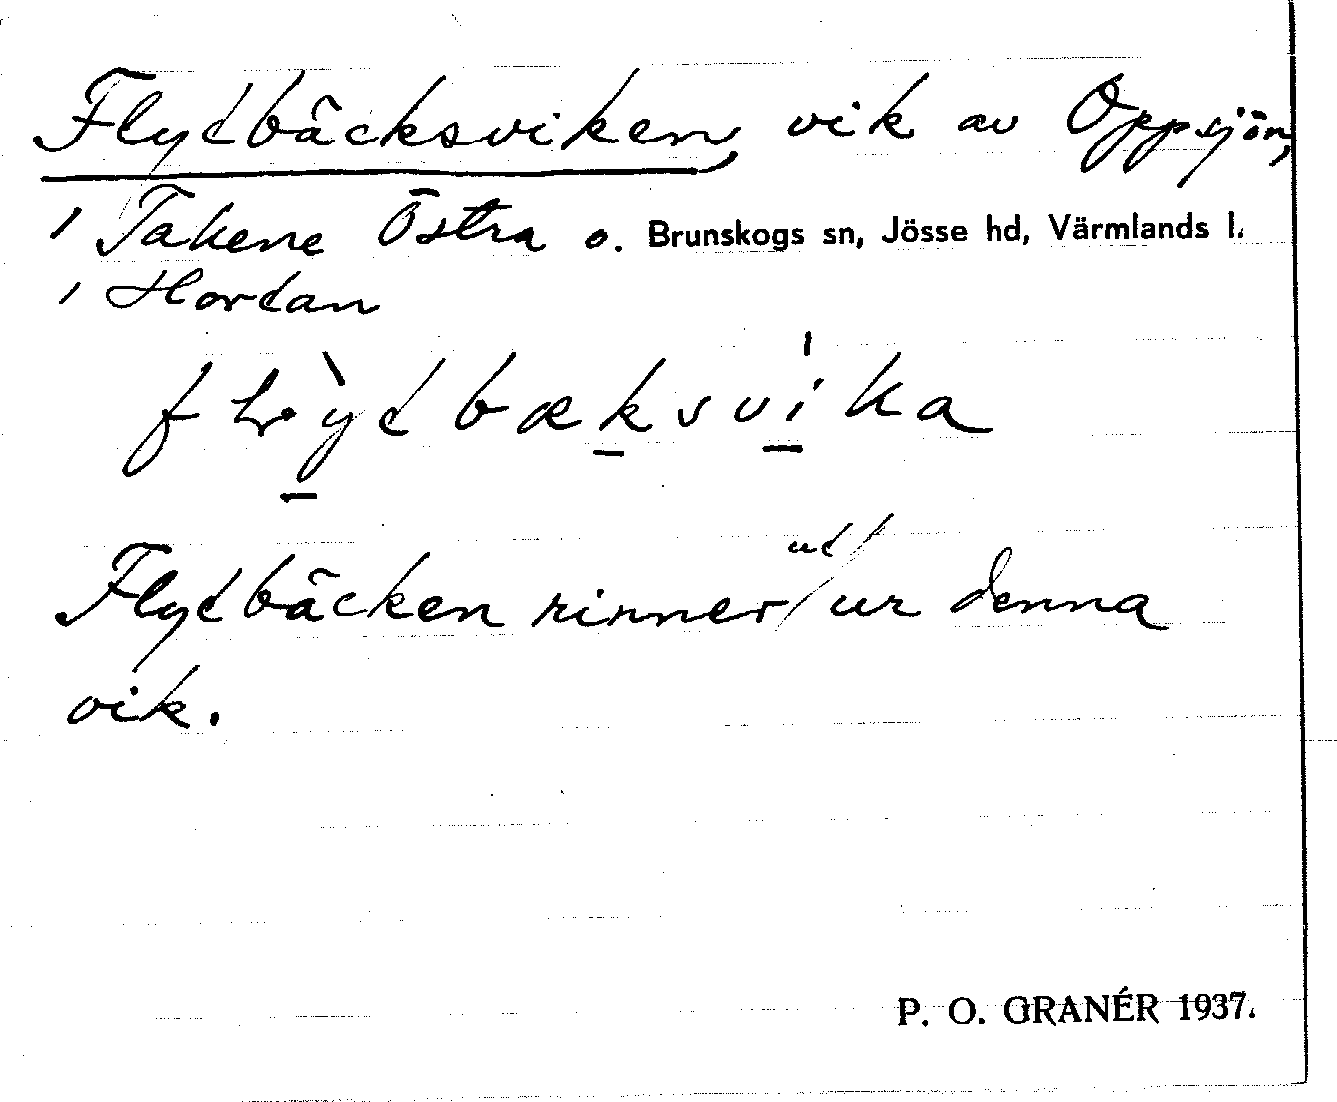 Flytbäcksviken, vik av Oppsjön,
1 Takene Östra o. Brunskogs sn, Jösse hd, Värmlands l.
1 Hortan
flỳtbæksvika
ut
Flytbäcken rinner / ur denna
vik.
P. O. GRANÉR 1937.